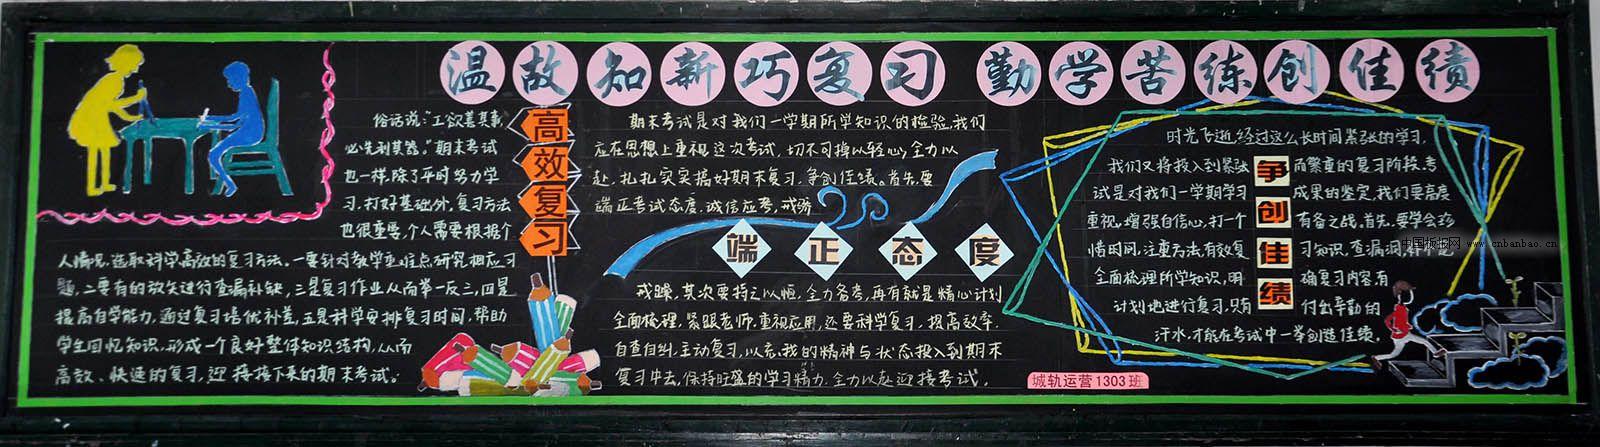 温故知新巧复习 勤学苦练创佳绩
高效复习
俗话说:“工欲善其事,
必先利其器。”期末考试
也一样,除了平时努力学
习,打好基础外,复习方法
也很重要,个人需要根据个
人情况,选取科学高效的复习方法。一要针对教学重难点研究相应习
题,二要有的放矢进行查漏补缺,三是复习作业从而举一反三,四是
提高自学能力,通过复习培优补差,五是科学安排复习时间,帮助
学生回忆知识,形成一个良好整体知识结构,从而
高效、快速的复习,迎接接下来的期末考试。
期末考试是对我们一学期所学知识的检验,我们
应在思想上重视这次考试,切不可掉以轻心,全力以
赴,扎扎实实搞好期末复习,争创佳绩。首先,要
端正考试态度,诚信应考,戒骄
端正态度
戒躁,其次要持之以恒,全力备考,再有就是精心计划
全面梳理,紧跟老师,重视应用,还要科学复习,提高效率,
自查自纠,主动复习,以忘我的精神与状态投入到期末
复习中去,保持旺盛的学习精力,全力以赴迎接考试。
争创佳绩
时光飞逝,经过这么长时间紧张的学习,
我们又将投入到紧张而繁重的复习阶段,考
试是对我们一学期学习成果的鉴定,我们要高度
重视,增强自信心,打一个有备之战,首先,要学会珍
惜时间,注重方法,有效复习知识,查漏洞,
全面梳理所学知识,明确复习内容,有
计划地进行复习,只有付出辛勤的
汗水,才能在考试中一举创造佳绩。
城轨运营1303班
中国板报网 www.cnbanbao.cn